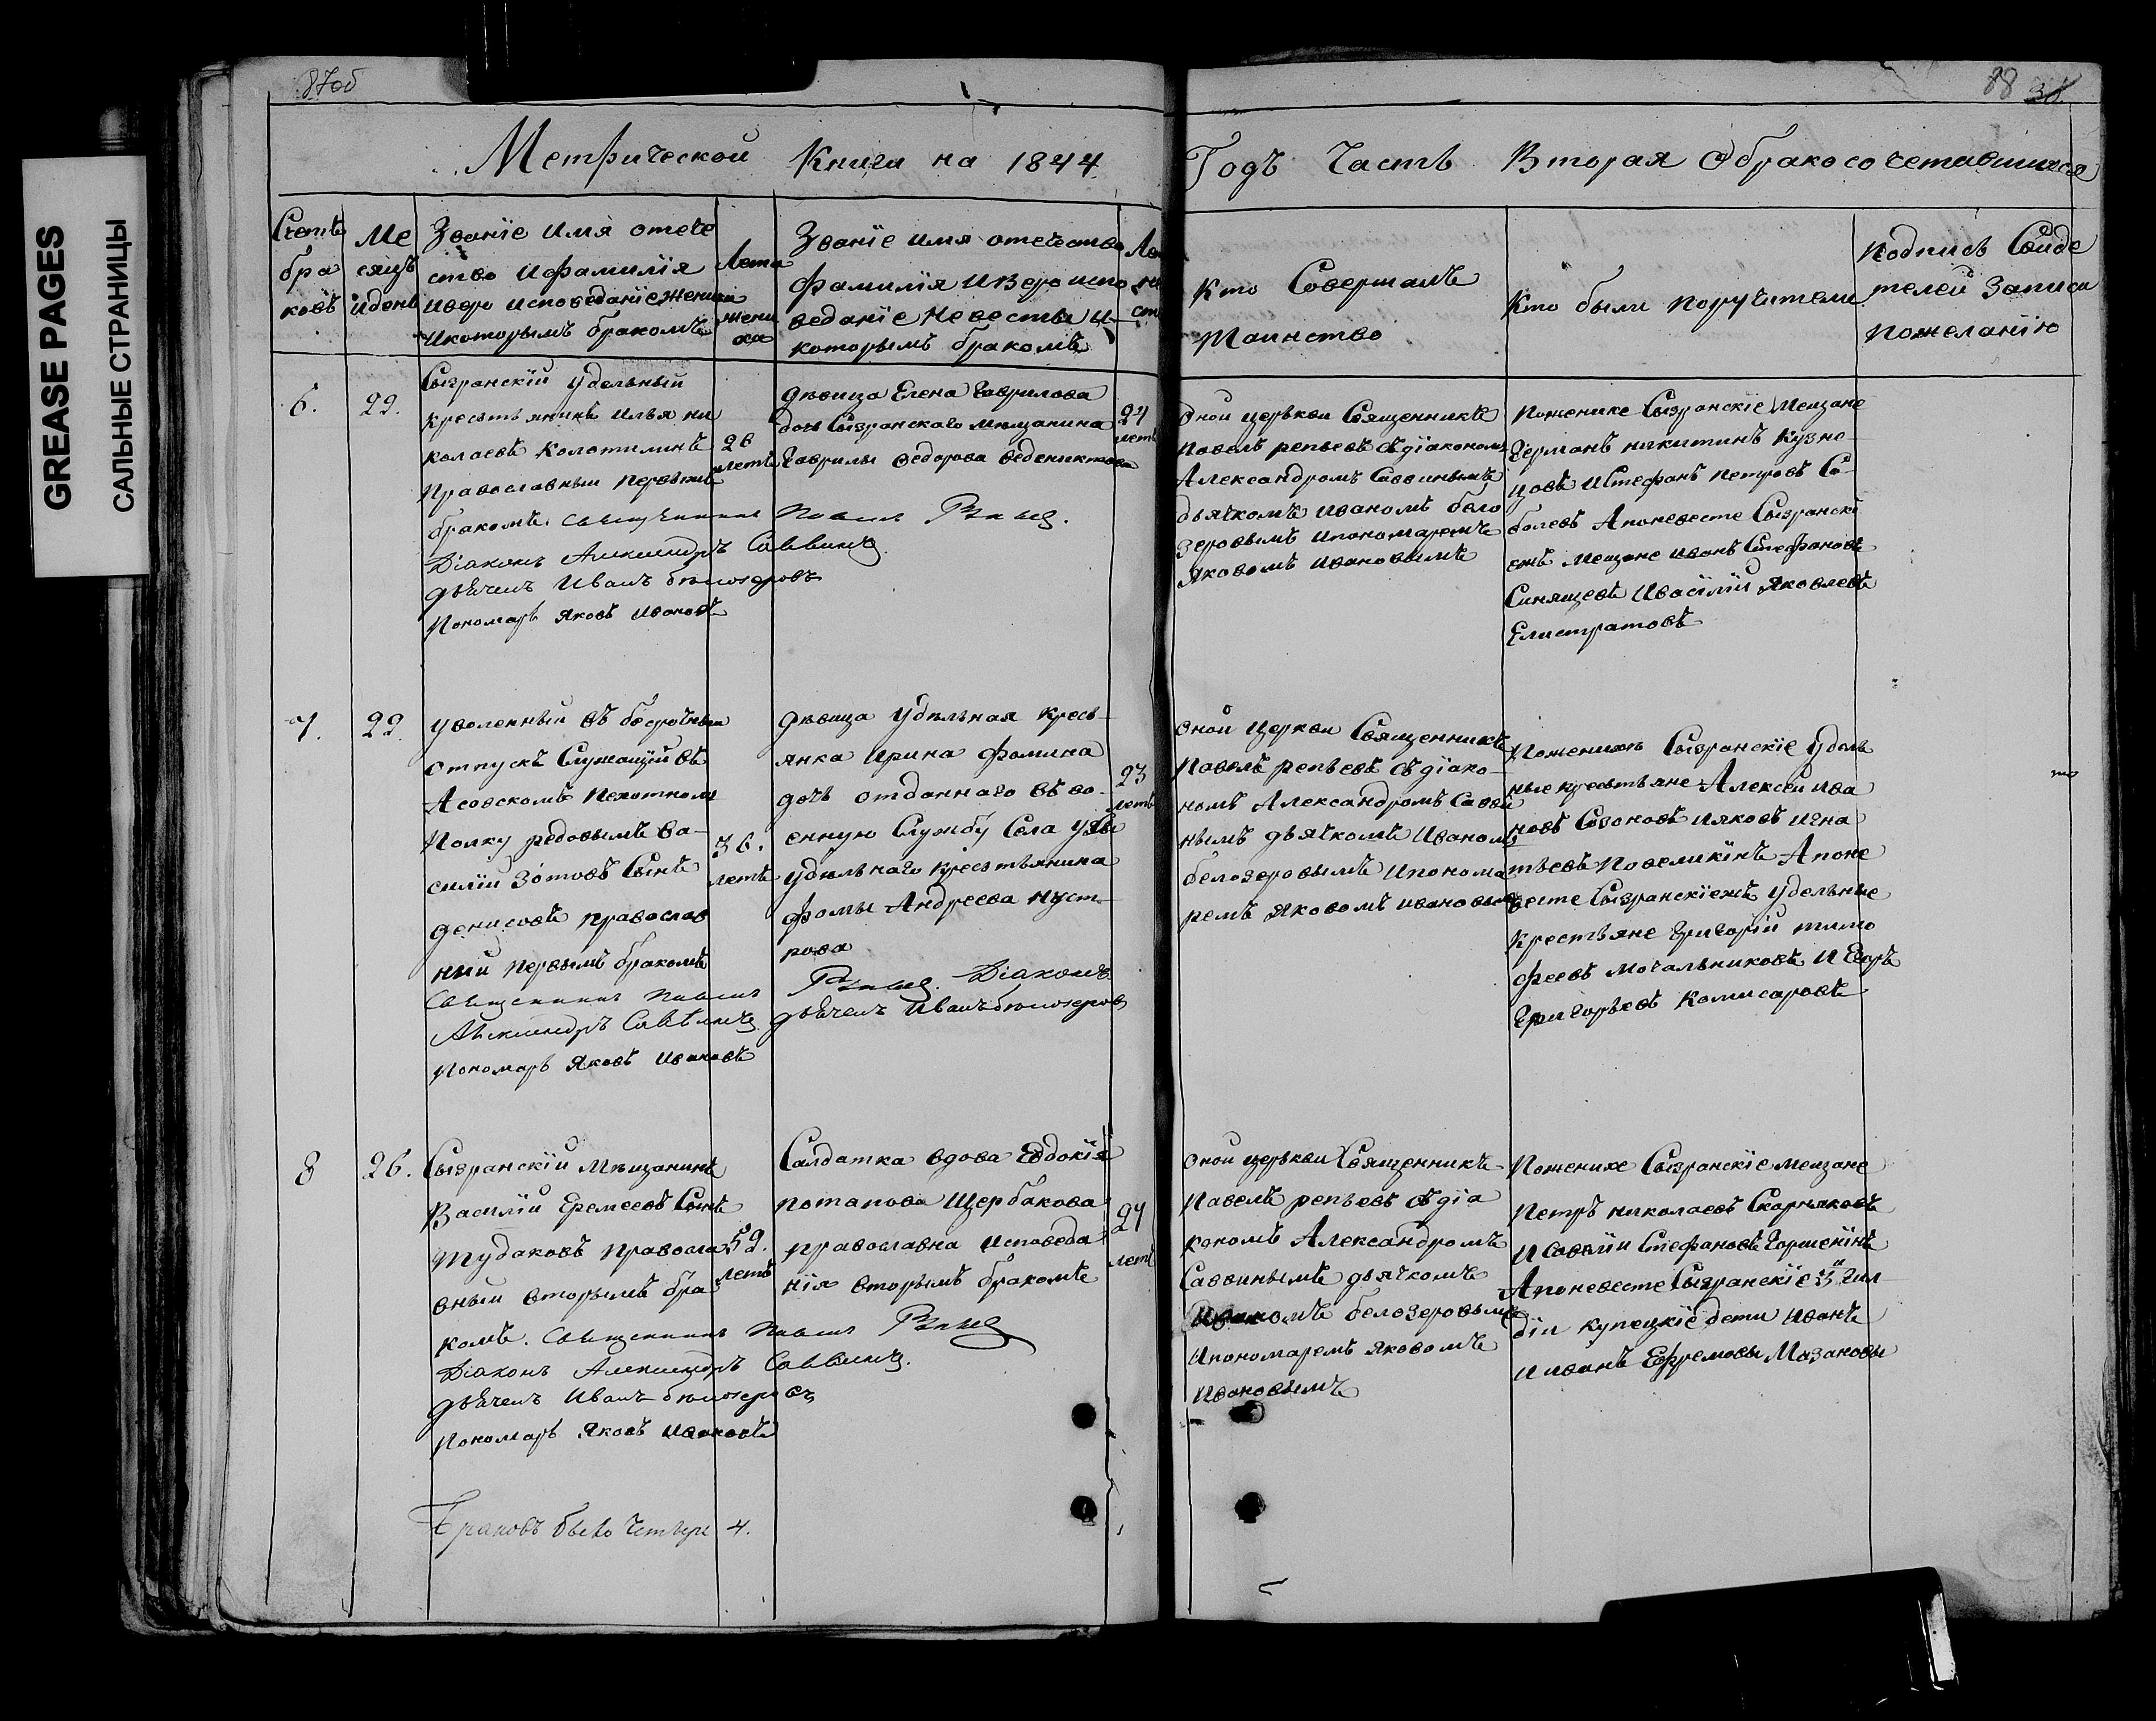 GREASE PAGES
САЛЬНЫЕ СТРАНИЦЫ
87об
88
Метрической Книги на 1844
Годъ Часть Вторая О бракосочетавшихся
Счетъ
бра
ковъ
Ме
сяцъ
и день
Званїе имя отече
ство и фамилїя
и веро исповеданїе жениха
и которымъ бракомъ
Лета
жени
ха
Званїе имя отечество
фамилїя и Веро испо
веданїе невесты и
которымъ бракомъ
Кто Совершалъ
Таинство
Кто были поручители
подпись Свиде
телей Записи
по желанїю
6.
22.
Сызранскїй удельный
крестьянинъ Илья ни
колаевъ Колотилинъ
Православный первымъ
бракомъ. Священникъ Павелъ
Дїаконъ Александръ Саввинъ
дьячекъ Иванъ бѣлозеровъ
Пономарь Яковъ Ивановъ
26
летъ
дѣвица Елена Гаврилова
дочь Сызранскаго мѣщанина
Гаврилы Федорова
24
летъ
Оной церькви Священникъ
Павелъ репьевъ съ дїакономъ
Александромъ Саввинымъ
дьячкомъ Иваномъ бело
зеровымъ и пономаремъ
Яковомъ Ивановымъ
По женихе Сызранскїе Мещане
Германъ никитинъ Кузне-
цовъ и Стефанъ петровъ Со-
болевъ А по невесте Сызранскї
ежъ мещане иванъ Стефановъ
Синящевъ и Васїлїй Яковлевъ
Елистратовъ
7.
22.
уволенный въ безсрочный
отпускъ Служащїй въ
Азовскомъ пехотномъ
Полку редовымъ Ва-
силїй Зотовъ Сынъ
денисовъ православ
ный первымъ бракомъ
Священникъ Павелъ
Александръ Саввинъ
Пономарь Яковъ Ивановъ
36.
летъ
дѣвица удѣльная кресь-
янка Ирина Фомина
дочь отданнаго въ во-
енную Службу Села
удѣльнаго крестьянина
Фомы Андреева
рова
Дїаконъ
дьячекъ Иванъ бѣлозеровъ
23
летъ
Оной Церкви Священникъ
Павелъ репьевъ съ дїако-
номъ Александромъ Савви
нымъ дьячкомъ Иваномъ
белозеровымъ и понома
ремъ Яковомъ Ивановымъ
По женихе Сызранскїе удель
ные крестьяне Алексей ива
новъ Созоновъ и яковъ игна
тьевъ Повеликинъ А по не
весте Сызранскїежъ удельные
крестьяне Григорїй тимо
феевъ Мочальниковъ и Егоръ
Григорьевъ Комисаровъ
8
26.
Сызранскїй мѣщанинъ
Василїй Еремеевъ Сынъ
Тудаковъ православ
вный вторымъ бра
комъ. Священникъ Павелъ
Дїаконъ Александръ Саввинъ.
дьячекъ Иванъ бѣлозеровъ
Пономарь Яковъ Ивановъ
52.
летъ
Салдатка вдова Евдокїя
потапова Щербакова
православна исповеда
нїя вторымъ бракомъ
24
летъ
Оной церькви Священникъ
Павелъ репьевъ съ дїа
кономъ Александромъ
Саввинымъ дьячкомъ
Иваномъ белозеровымъ
и пономаремъ яковомъ
Ивановымъ
По женихе Сызранскїе мещане
Петръ николаевъ Скорняковъ
и Савелїй Стефановъ Горшенїнъ
А по невесте Сызранскїе 3й гил
дїи купецкїе дети Иванъ
и иванъ Ефремовы Мазановы
Браковъ было Четыре 4.